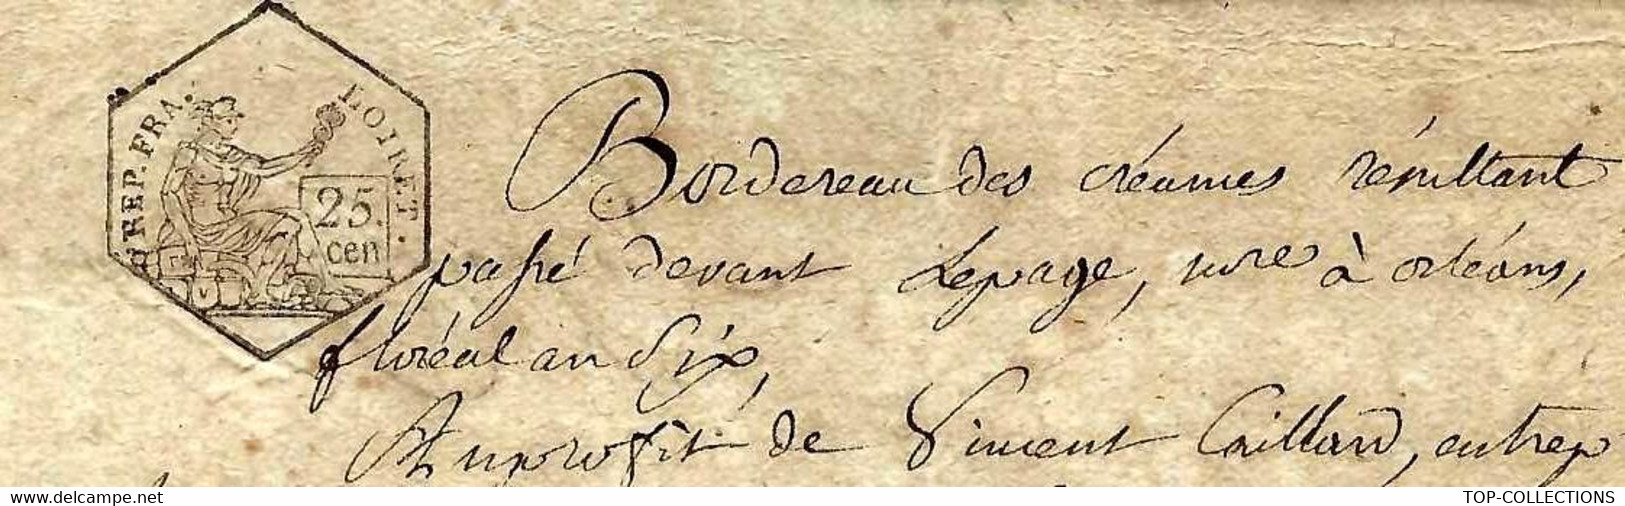 REP. FRA. LOIRET.
25.
cen
Bordereau des créances résultant
passé devant Lepage, nore à orléans,
floréal an Six,
Au profit de Vincent Caillard, entrep
www.delcampe.net
TOP-COLLECTIONS